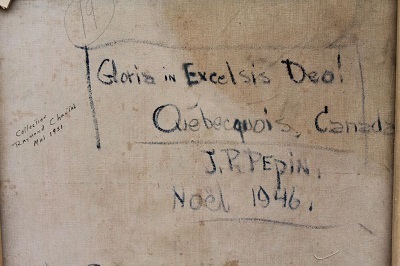 Gloria in Excelsis Deo!
Québecquois, Canada
J.P. Pepin.
Noël 1946.
Collection
Raymond